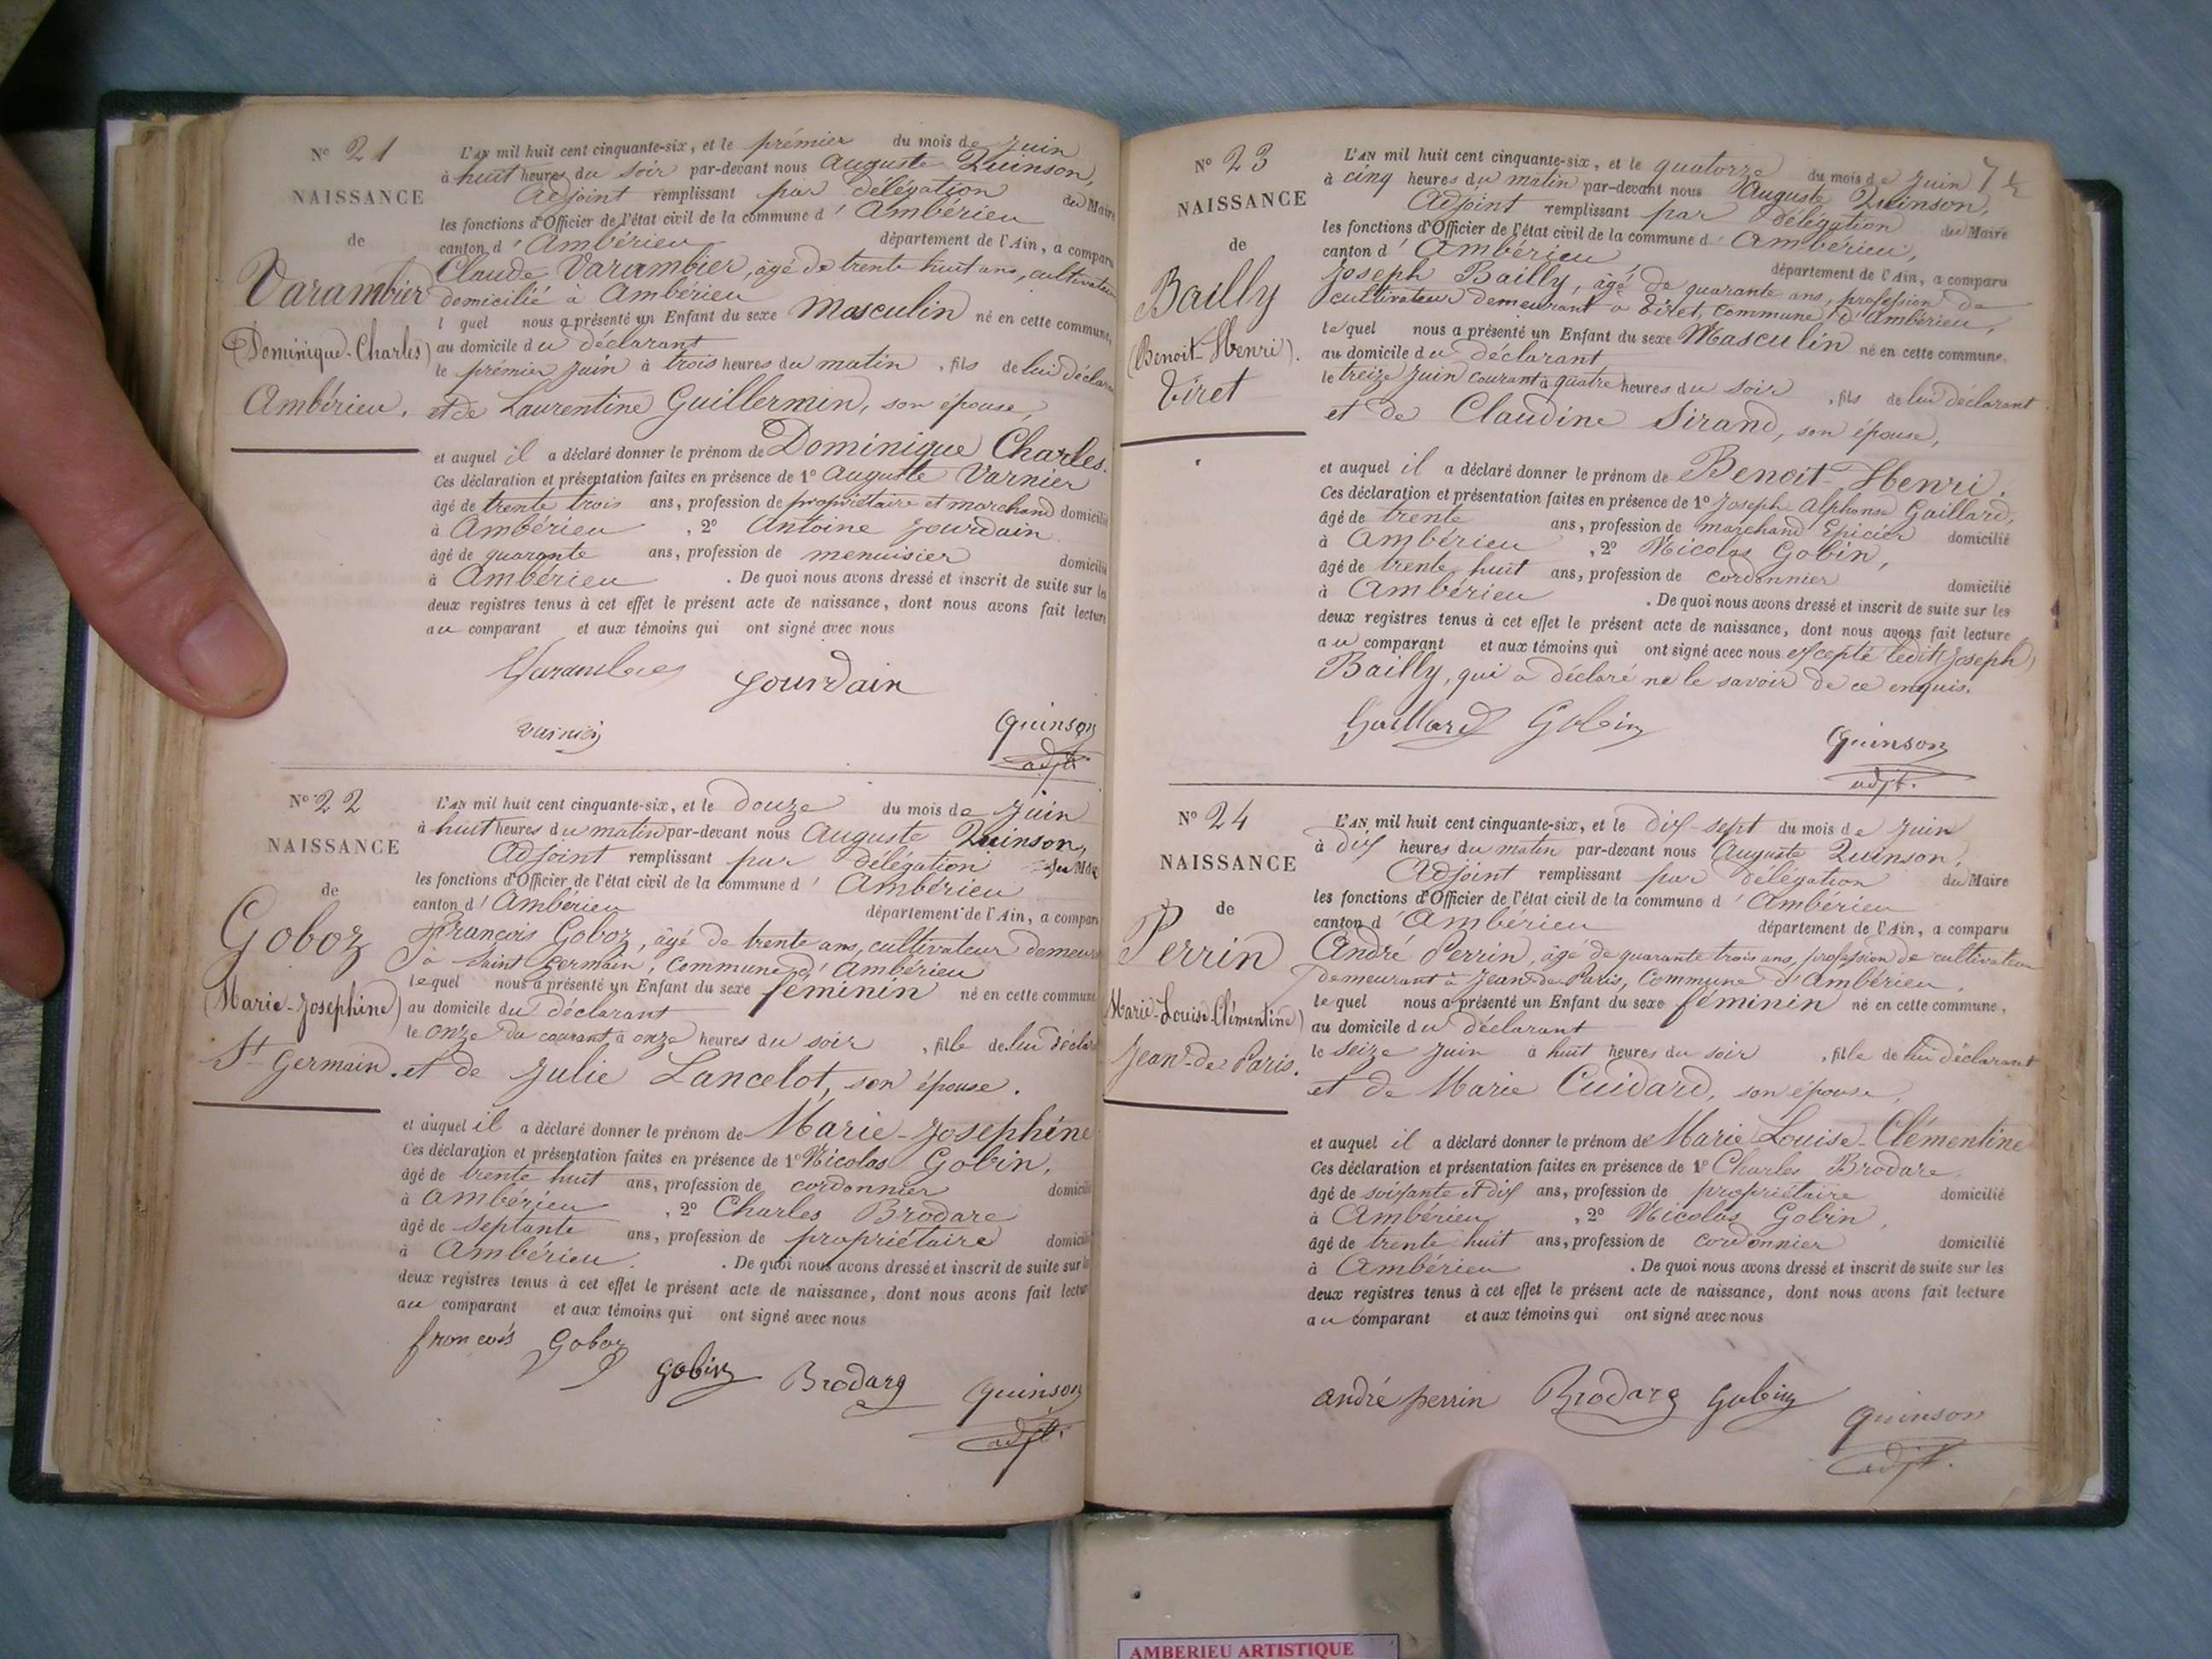 N° 21
NAISSANCE
de
Varambier
(Dominique-Charles)
Ambérieu.
L'AN mil huit cent cinquante-six, et le prémier du mois de Juin
à huit heures du soir par-devant nous Auguste Quinson,
Adjoint remplissant par délégation du Maire
les fonctions d'Officier de l'état civil de la commune d'Ambérieu
canton d'Ambérieu département de l'Ain, a comparu
Claude Varambier, âgé de trente huit ans, cultivateur
domicilié à Ambérieu
l quel nous a présenté un Enfant du sexe Masculin né en cette commune,
au domicile du déclarant
le prémier Juin à trois heures du matin, fils de lui déclarant
et de Laurentine Guillermin, son épouse,
et auquel il a déclaré donner le prénom de Dominique Charles.
Ces déclaration et présentation faites en présence de 1° Auguste Varnier
âgé de trente trois ans, profession de propriétaire et marchand domicilié
à Ambérieu, 2° Antoine Jourdain
âgé de quarante ans, profession de menuisier domicilié
à Ambérieu. De quoi nous avons dressé et inscrit de suite sur les
deux registres tenus à cet effet le présent acte de naissance, dont nous avons fait lecture
au comparant et aux témoins qui ont signé avec nous
Jourdain
Varnier
Quinson
adjt.
N° 22
NAISSANCE
de
Goboz
(Marie-Josephine)
St Germain.
L'AN mil huit cent cinquante-six, et le douze du mois de Juin
à huit heures du matin par-devant nous Auguste Quinson,
Adjoint remplissant par délégation du Mai
les fonctions d'Officier de l'état civil de la commune d'Ambérieu
canton d'Ambérieu département de l'Ain, a comparu
François Goboz, âgé de trente ans, cultivateur demeur
à Saint Germain, Commune d'Ambérieu
lequel nous a présenté un Enfant du sexe féminin né en cette commune
au domicile du déclarant
le onze du courant à onze heures du soir, fille de lui déclar
et de Julie Lancelot, son épouse.
et auquel il a déclaré donner le prénom de Marie-Josephine
Ces déclaration et présentation faites en présence de 1° Nicolas Gobin,
âgé de trente huit ans, profession de cordonnier domicilié
à Ambérieu, 2° Charles Brodare
âgé de septante ans, profession de propriétaire domicilié
à Ambérieu. De quoi nous avons dressé et inscrit de suite sur le
deux registres tenus à cet effet le présent acte de naissance, dont nous avons fait lectur
au comparant et aux témoins qui ont signé avec nous
françois Goboz
Gobin Brodare Quinson
adjt.
N° 23
NAISSANCE
de
Bailly
(Benoit-Henri).
Tiret
L'AN mil huit cent cinquante-six, et le quatorze du mois de Juin 7 ½
à cinq heures du matin par-devant nous Auguste Quinson,
Adjoint remplissant par délégation du Maire
les fonctions d'Officier de l'état civil de la commune d'Ambérieu,
canton d'Ambérieu département de l'Ain, a comparu
Joseph Bailly, âgé de quarante ans, profession de
cultivateur demeurant à Tiret, Commune d'Ambérieu,
lequel nous a présenté un Enfant du sexe Masculin né en cette commune,
au domicile du déclarant
le treize Juin courant à quatre heures du soir, fils de lui déclarant
et de Claudine Sirand, son épouse,
et auquel il a déclaré donner le prénom de Benoit-Henri.
Ces déclaration et présentation faites en présence de 1° Joseph Alphonse Gaillard,
âgé de trente ans, profession de marchand Epicier domicilié
à Ambérieu, 2° Nicolas Gobin,
âgé de trente huit ans, profession de cordonnier domicilié
à Ambérieu. De quoi nous avons dressé et inscrit de suite sur les
deux registres tenus à cet effet le présent acte de naissance, dont nous avons fait lecture
au comparant et aux témoins qui ont signé avec nous excepté ledit Joseph
Bailly, qui a déclaré ne le savoir de ce enquis.
Gaillard Gobin
Quinson
adjt.
N° 24
NAISSANCE
de
Perrin
(Marie-Louise-Clémentine)
Jean-de-Paris.
L'AN mil huit cent cinquante-six, et le dix-sept du mois de Juin
à dix heures du matin par-devant nous Auguste Quinson,
Adjoint remplissant par délégation du Maire
les fonctions d'Officier de l'état civil de la commune d'Ambérieu
canton d'Ambérieu département de l'Ain, a comparu
André Perrin, âgé de quarante trois ans, profession de cultivateur
demeurant à Jean-de-Paris, Commune d'Ambérieu,
lequel nous a présenté un Enfant du sexe féminin né en cette commune,
au domicile du déclarant
le seize Juin à huit heures du soir, fille de lui déclarant
et de Marie Cuidard, son épouse,
et auquel il a déclaré donner le prénom de Marie Louise-Clémentine
Ces déclaration et présentation faites en présence de 1° Charles Brodare,
âgé de soixante et dix ans, profession de propriétaire domicilié
à Ambérieu, 2° Nicolas Gobin,
âgé de trente huit ans, profession de cordonnier domicilié
à Ambérieu. De quoi nous avons dressé et inscrit de suite sur les
deux registres tenus à cet effet le présent acte de naissance, dont nous avons fait lecture
au comparant et aux témoins qui ont signé avec nous
andré perrin Brodare Gobin
Quinson
adjt.
AMBERIEU ARTISTIQUE